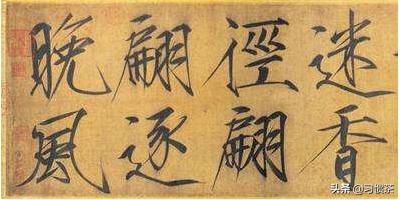 迷香
徑翩
翩逐
晚風
头条 @习惯茶